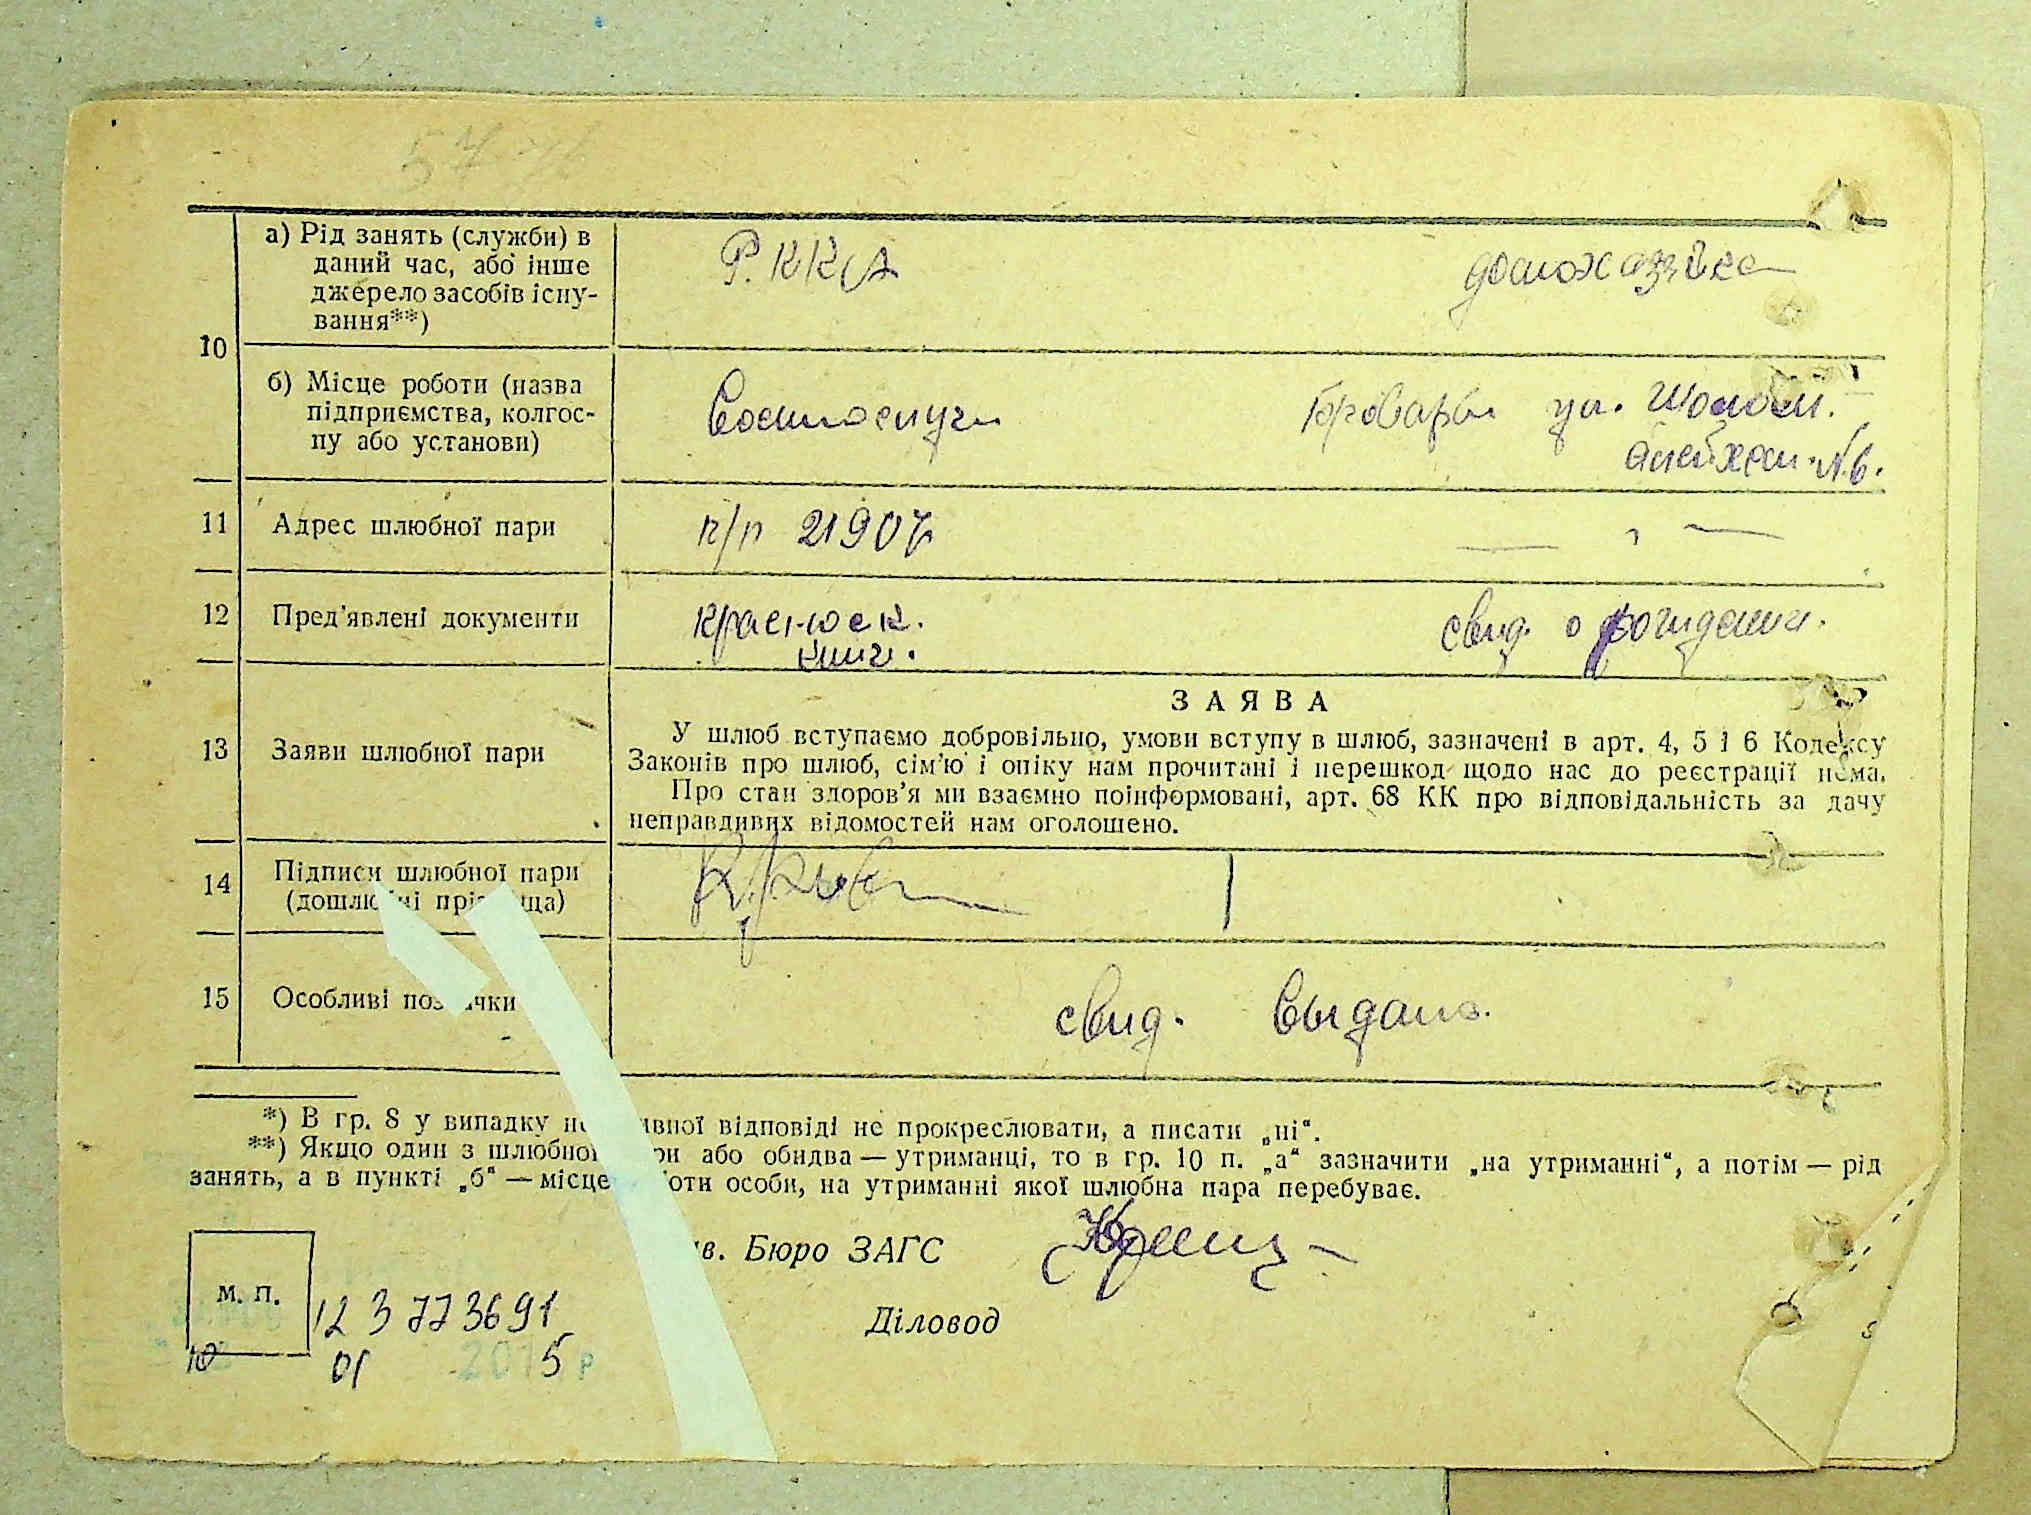 а) Рід занять (служби) в
даний час, або інше
джерело засобів існу-
вання**)
Р.ККА
домохазяйка
10
б) Місце роботи (назва
підприємства, колгос-
пу або установи)
Бровары ул. Шолом.
Алейхем. №6.
11
Адрес шлюбної пари
п/п 21907
— " —
12
Пред'явлені документи
красноск.
книж.
свид. о рождении.
13
Заяви шлюбної пари
ЗАЯВА
У шлюб вступаємо добровільно, умови вступу в шлюб, зазначені в арт. 4, 5 і 6 Кодексу
Законів про шлюб, сім'ю і опіку нам прочитані і перешкод щодо нас до реєстрації нема.
Про стан здоров'я ми взаємно поінформовані, арт. 68 КК про відповідальність за дачу
неправдивих відомостей нам оголошено.
14
Підписи шлюбної пари
15
Особливі
свид. выдано.
*) В гр. 8 у випадку відповіді не прокреслювати, а писати „ні“.
**) Якщо один з шлюбної або обидва — утриманці, то в гр. 10 п. „а“ зазначити „на утриманні“, а потім — рід
занять, а в пункті „б“ — місце особи, на утриманні якої шлюбна пара перебуває.
Бюро ЗАГС
м. п.
12 3 773691
Діловод
10 01 2015 р